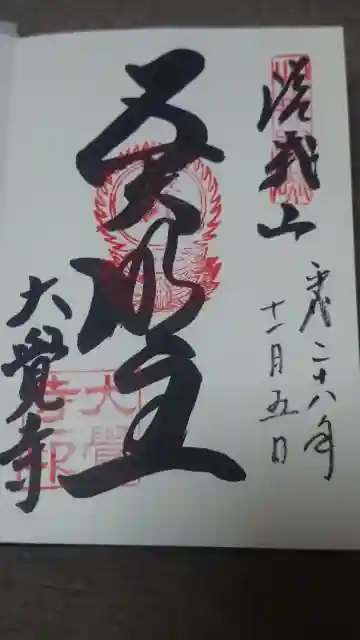 嵯峨山
平成二十八年
十一月五日
五大明王
大覺寺
大覺
寺印